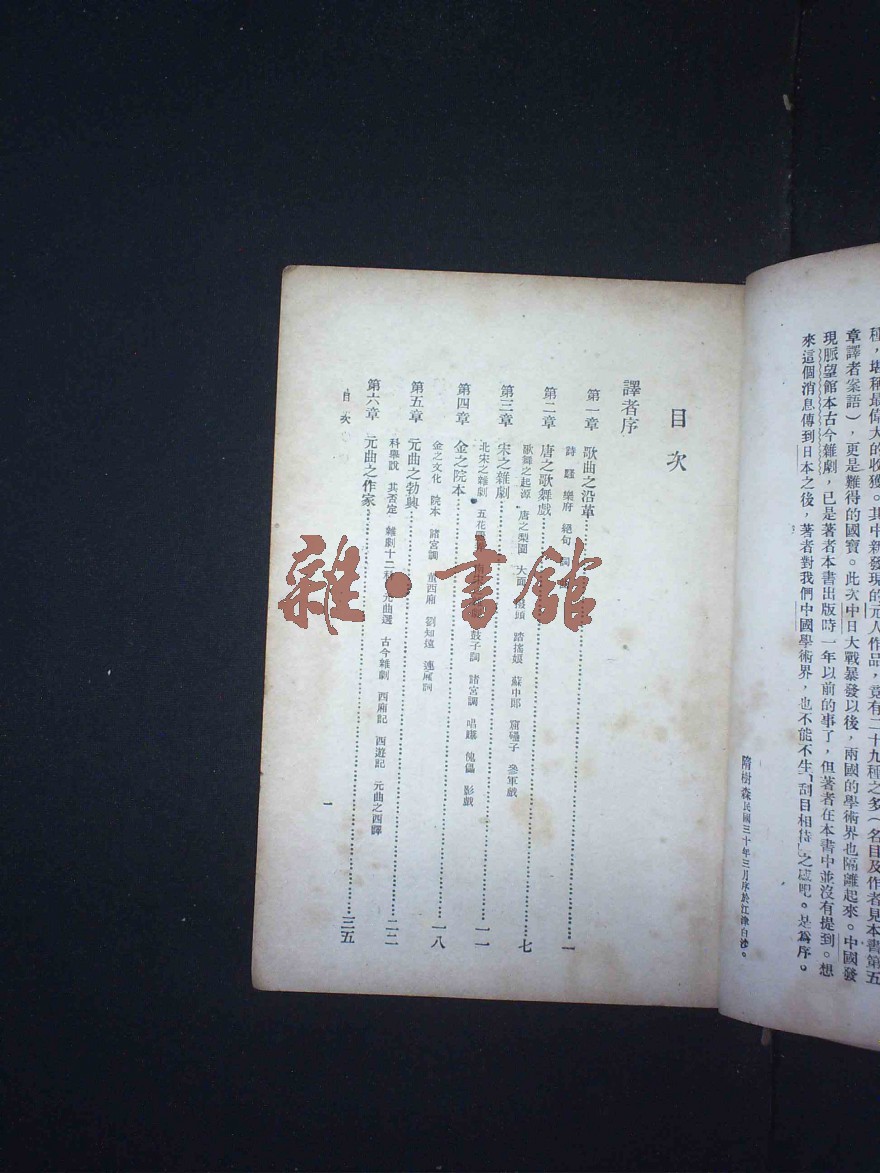 種，堪稱最偉大的收獲。其中新發現的元人作品，竟有二十九種之多（名目及作者見本書第五
章譯者案語），更是難得的國寶。此次中日大戰暴發以後，兩國的學術界也隔離起來。中國發
現脈望館本古今雜劇，已是著者本書出版時一年以前的事了，但著者在本書中並沒有提到。想
來這個消息傳到日本之後，著者對我們中國學術界，也不能不生「刮目相待」之感吧。是爲序。
隋樹森民國三十年三月序於江津白沙。
目次
譯者序
第一章 歌曲之沿革 一
詩 騷 樂府 絕句 詞
第二章 唐之歌舞戲 七
歌舞之起源 唐之梨園 大面 撥頭 踏搖娘 蘇中郎 窟礧子 參軍戲
第三章 宋之雜劇 一一
北宋之雜劇 五花 鼓子詞 諸宮調 唱賺 傀儡 影戲
第四章 金之院本 一八
金之文化 院本 諸宮調 董西廂 劉知遠 連廂詞
第五章 元曲之勃興 二二
科舉說 其否定 雜劇十二科 元曲選 古今雜劇 西廂記 西遊記 元曲之西譯
第六章 元曲之作家 三五
目次
一
雜·書館